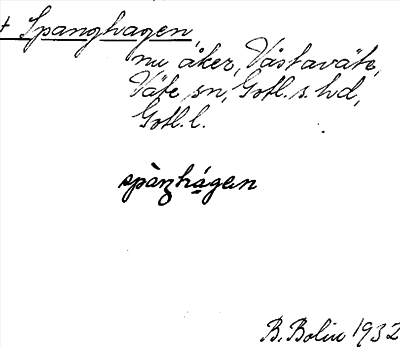 + Spanghagen,
nu åker, Västaväte,
Väte sn, Gotl. s. hd,
Gotl. l.
spànhágen
B. Bolin 1932